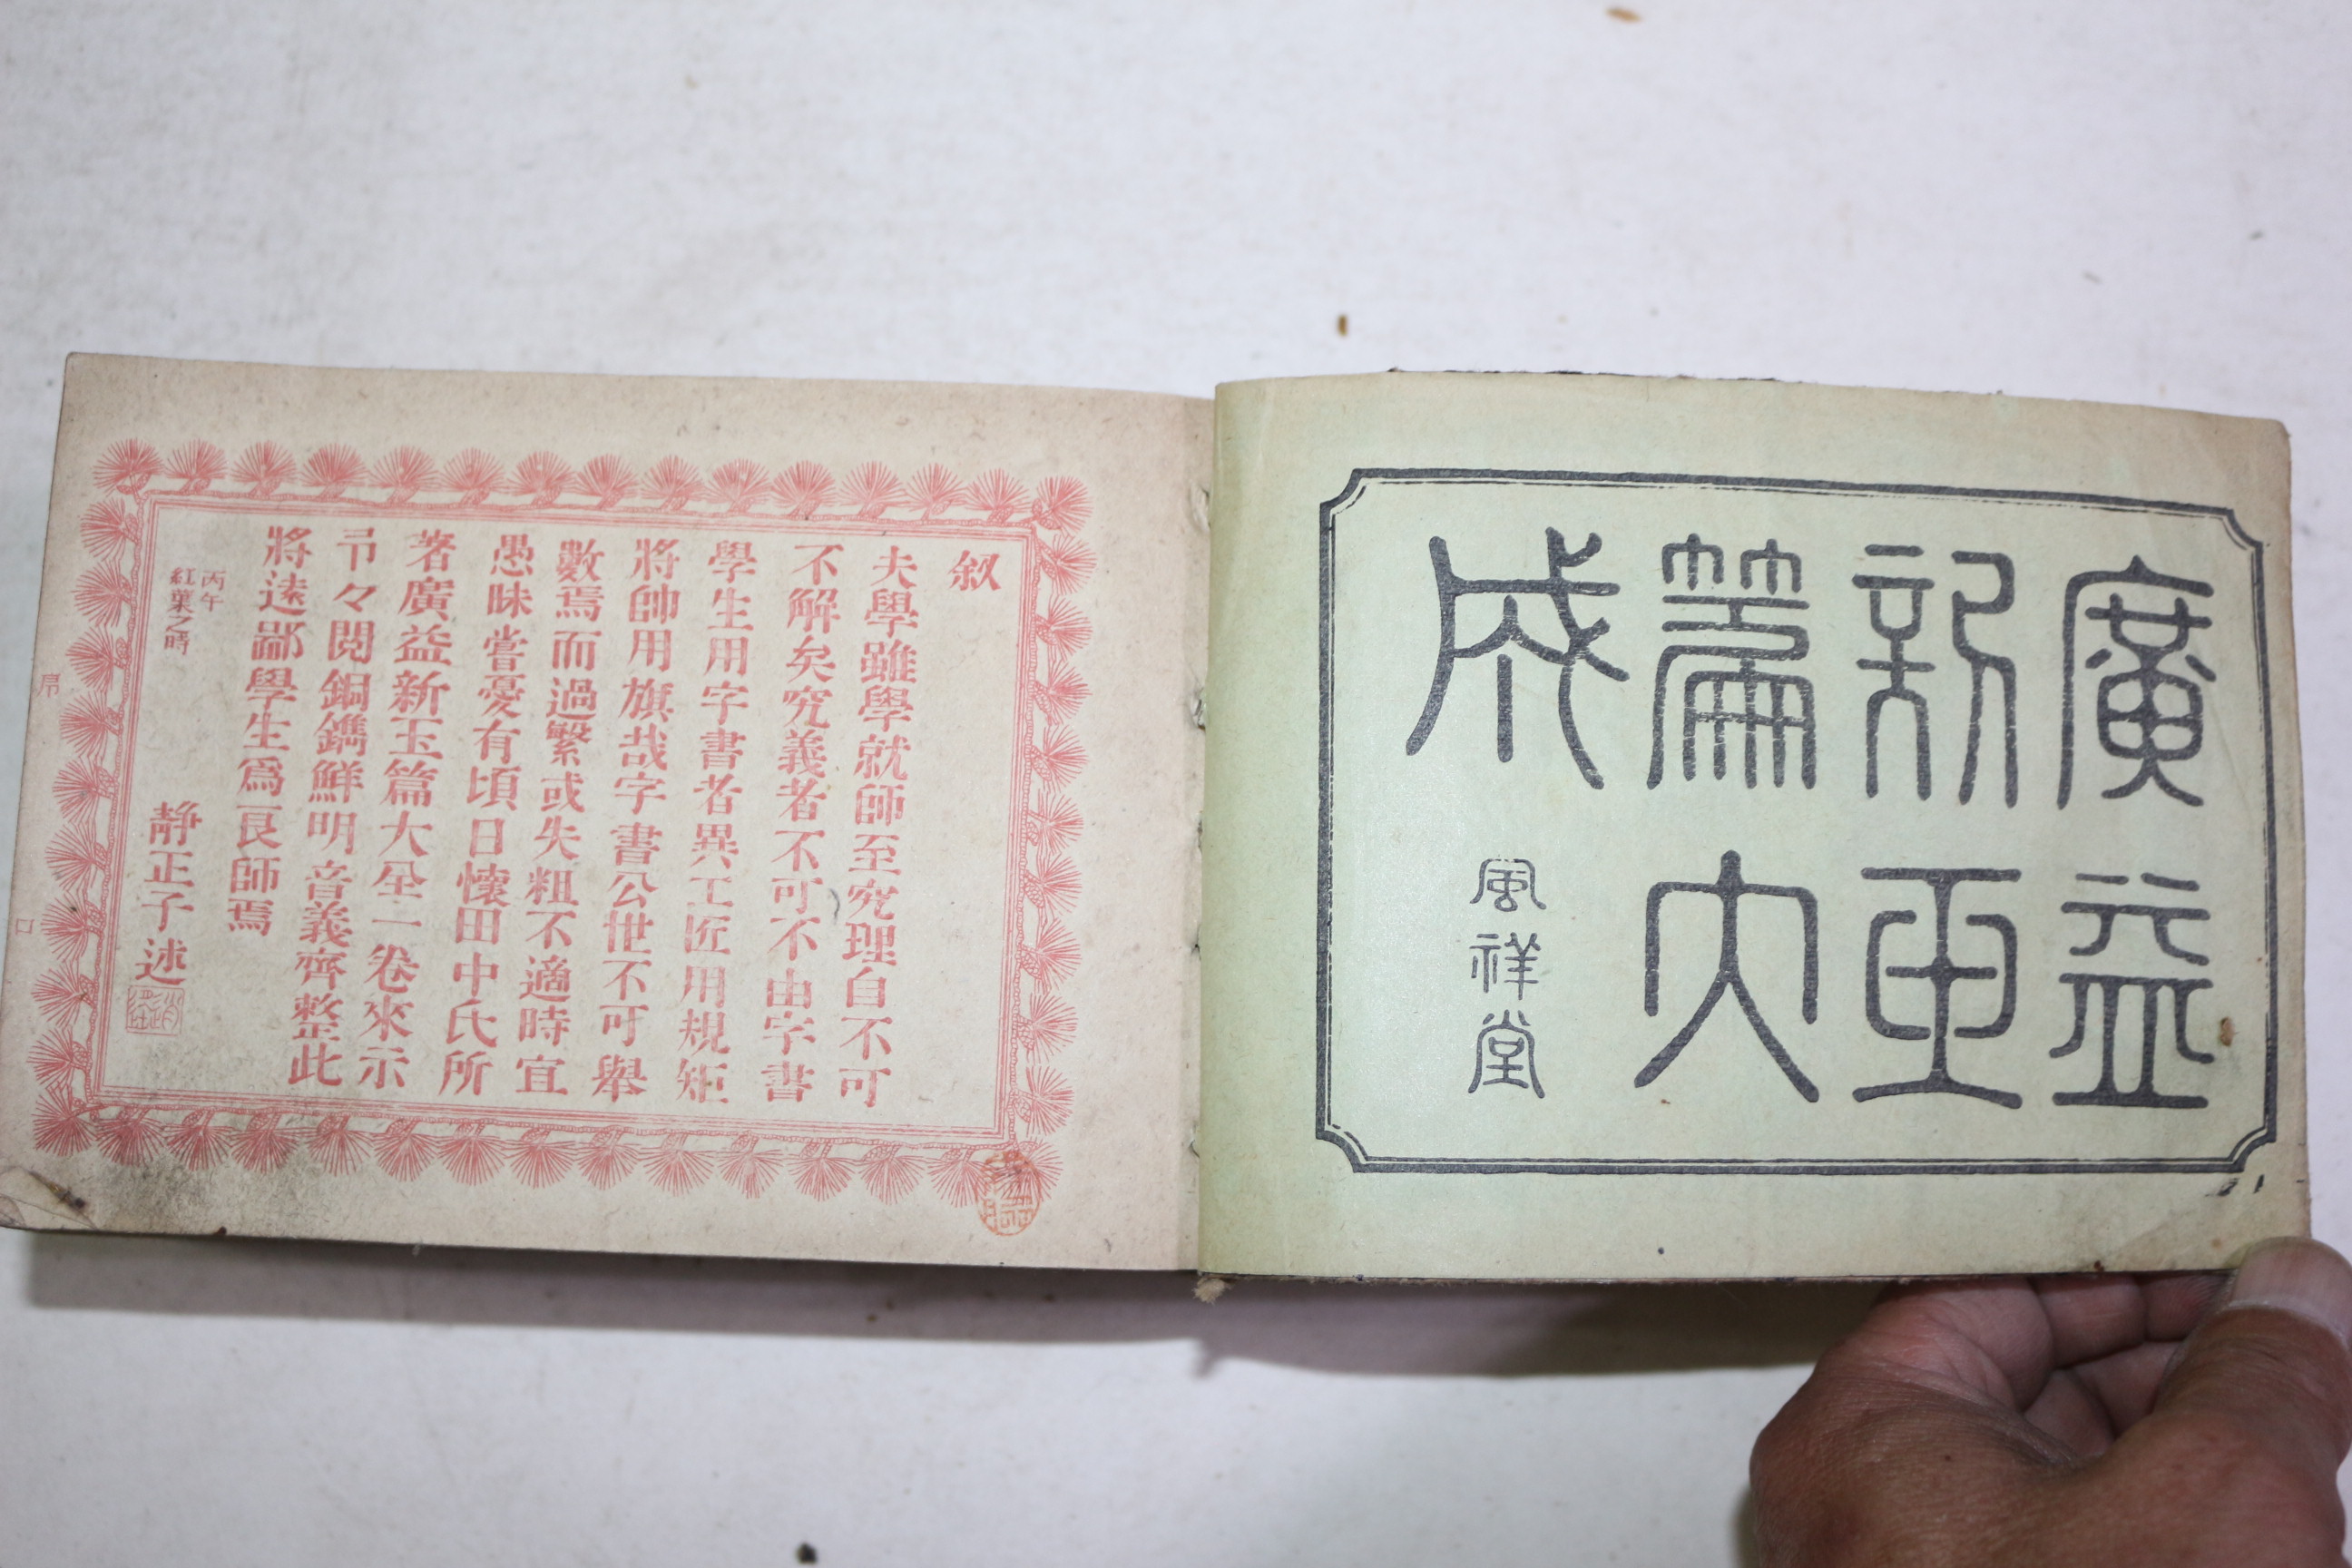 廣益
新玉
篇大
成
風祥堂
叙
夫學雖學就師至究理自不可
不解矣究義者不可不由字書
學生用字書者異工匠用規矩
將帥用旗哉字書公世不可舉
數焉而過繁或失粗不適時宜
愚昧嘗憂有頃日懷田中氏所
著廣益新玉篇大全一卷來示
弔々閲銅鐫鮮明音義齊整此
將遠鄙學生爲良師焉
丙午
紅葉之時
靜正子述